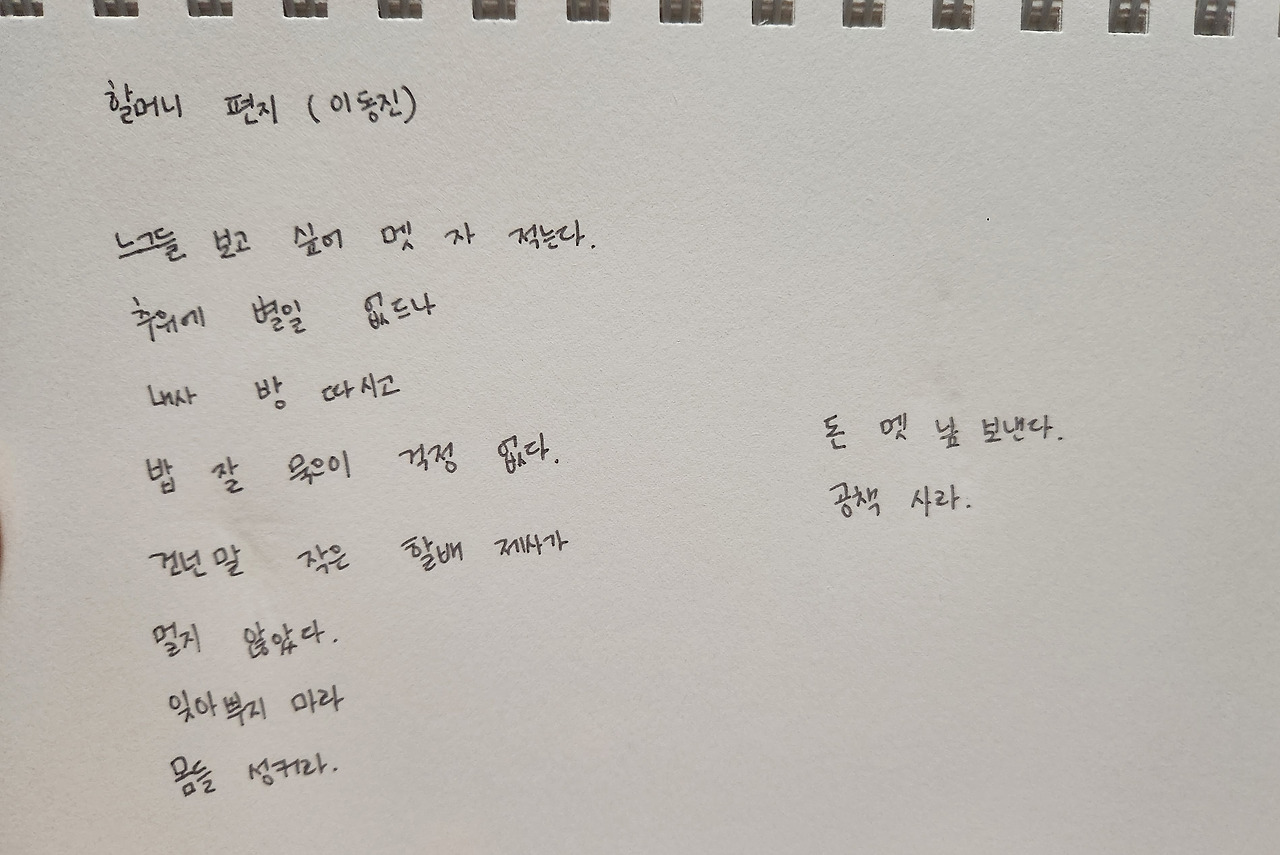 할머니 편지 (이동진)
느그들 보고 싶어 멧 자 적는다.
추위에 별일 없드나
내사 방 따시고
밥 잘 묵으이 걱정 없다.
건넌말 작은 할배 제사가
멀지 않았다.
잊아뿌지 마라
몸들 성커라.
돈 멧 닢 보낸다.
공책 사라.